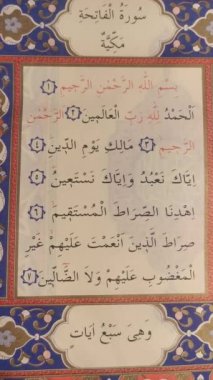 سُورَةُ الْفَاتِحَةِ
مَكِّيَّةٌ
بِسْمِ اللّٰهِ الرَّحْمٰنِ الرَّحِيمِ ﴿١﴾
اَلْحَمْدُ لِلّٰهِ رَبِّ الْعَالَمِينَ ﴿٢﴾ اَلرَّحْمٰنِ
الرَّحِيمِ ﴿٣﴾ مَالِكِ يَوْمِ الدِّينِ ﴿٤﴾
اِيَّاكَ نَعْبُدُ وَاِيَّاكَ نَسْتَعِينُ ﴿٥﴾
اِهْدِنَا الصِّرَاطَ الْمُسْتَقِيمَ ﴿٦﴾
صِرَاطَ الَّذِينَ اَنْعَمْتَ عَلَيْهِمْ غَيْرِ
الْمَغْضُوبِ عَلَيْهِمْ وَلَا الضَّٓالِّينَ ﴿٧﴾
وَهِيَ سَبْعُ اٰيَاتٍ